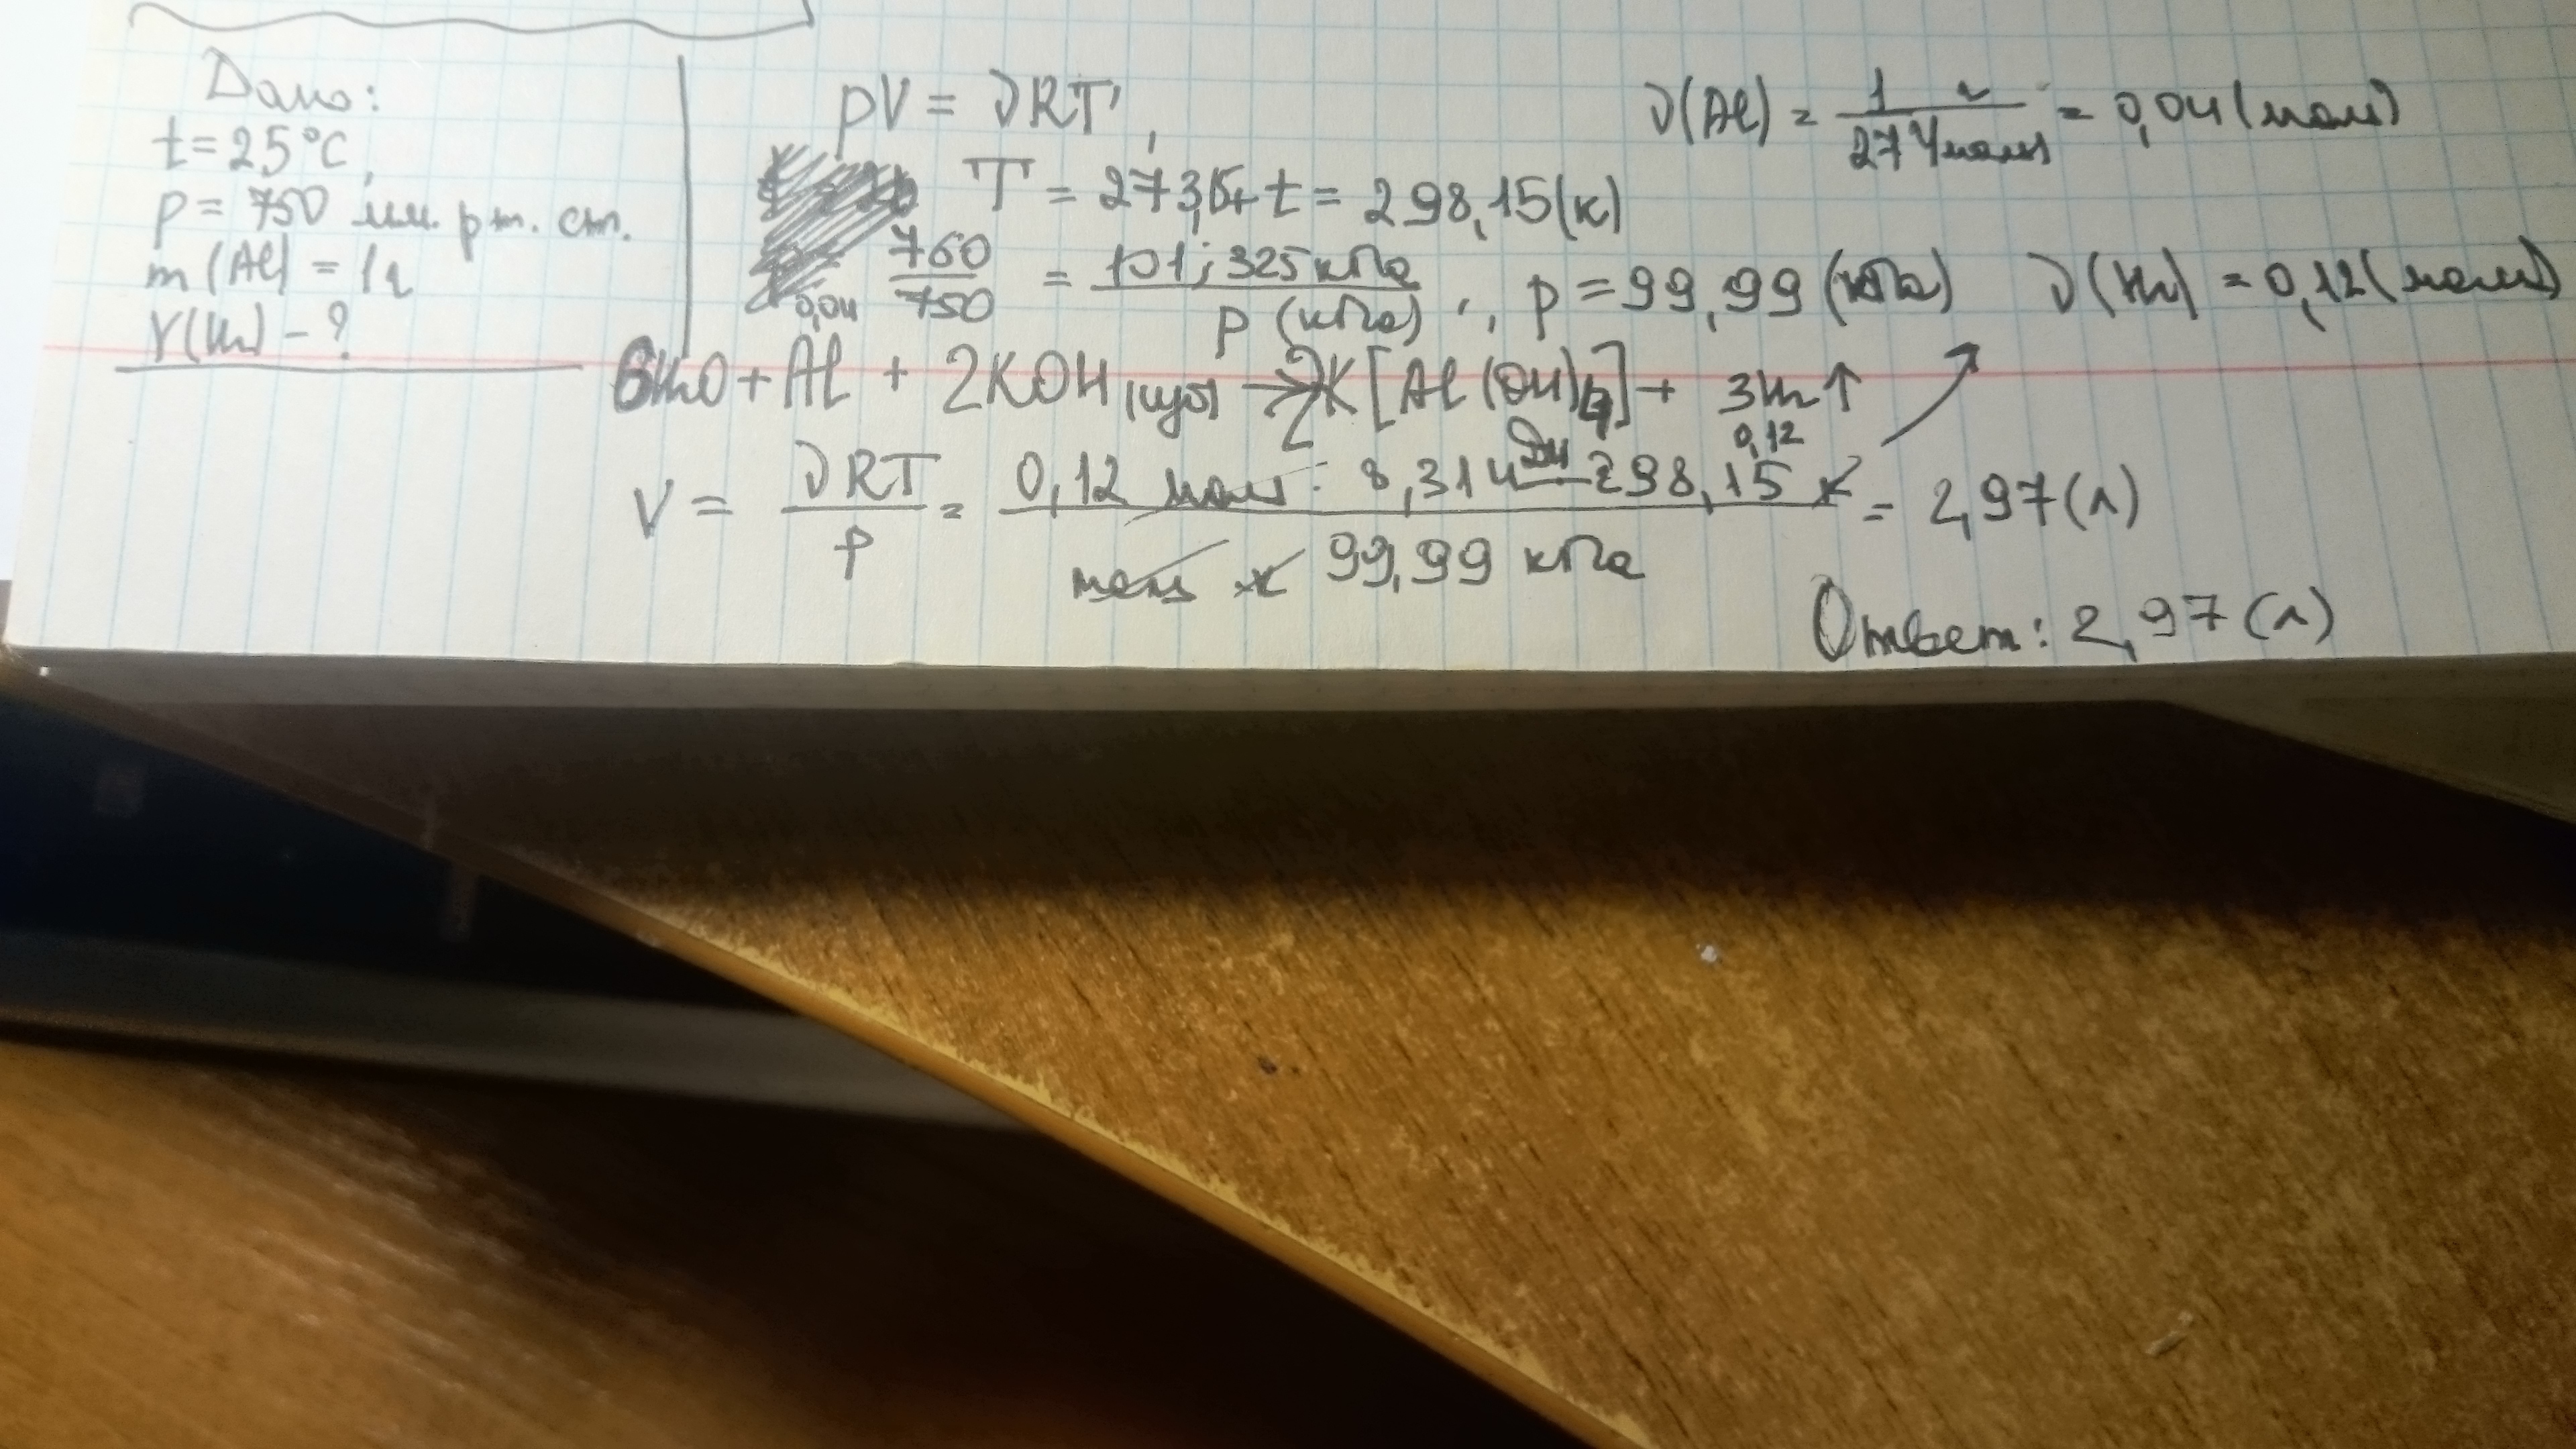 Дано:
t = 25°C,
p = 750 мм. рт. ст.
m (Al) = 1 г
V(H₂) - ?
pV = νRT,
T = 273,15 + t = 298,15 (К)
760/750 = 101,325 кПа/p (кПа); p = 99,99 (кПа)
ν(Al) = 1 г/27 г/моль = 0,04 (моль)
ν(H₂) = 0,12 (моль)
0,04
6H₂O + Al + 2KOH (изб) → 2K[Al(OH)₄] + 3H₂↑
0,12
V = νRT/p = 0,12 моль · 8,314 Дж · 298,15 К/моль · К · 99,99 кПа = 2,97 (л)
Ответ: 2,97 (л)